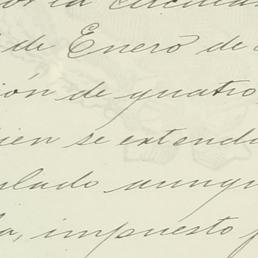 la circula
de Enero de
ión de quatro
ien se extendi
ulado aunqu
a, impuesto p